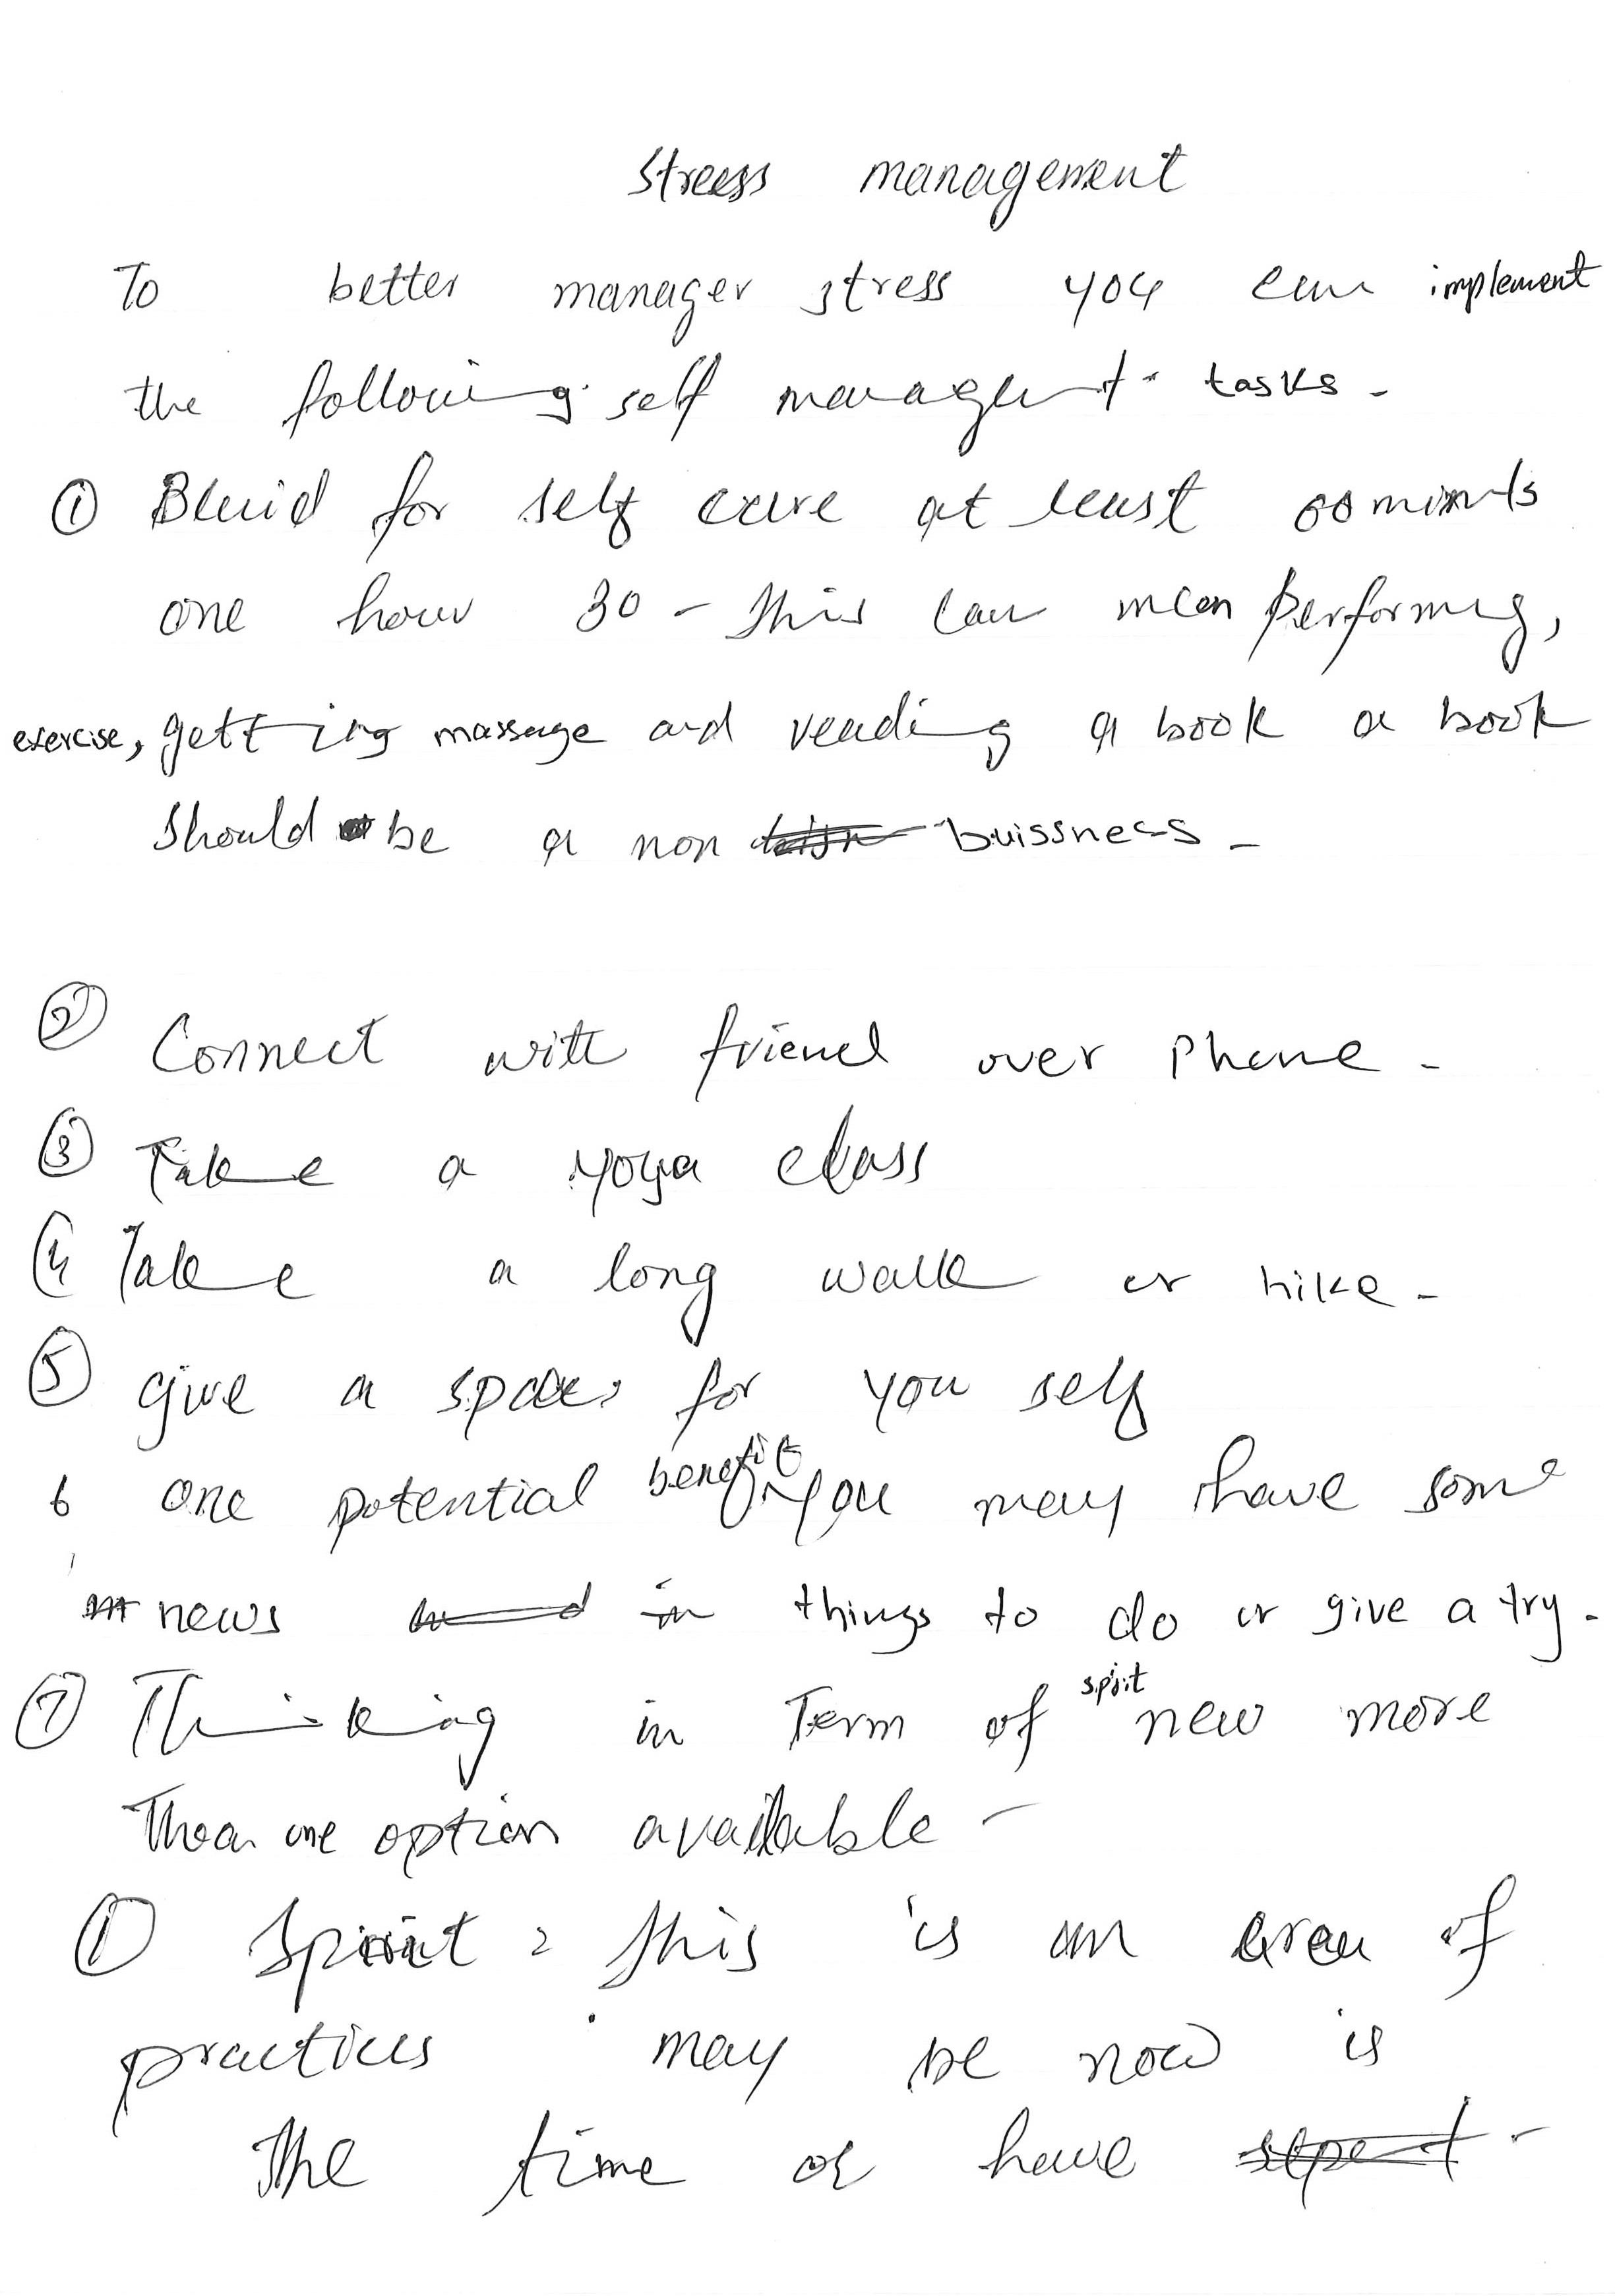 Streess management
To better manager stress you can implement
the following self managent tasks -
① Bluid for self care at least 00 minuts
one hour 30 - This can mean performing,
exercise, getting massage and reading a book a book
should be a non buissness -
② Connect with friend over phone -
③ Take a yoga class
④ Take a long walk or hike -
⑤ give a space for you self
6 one potential benefit you may have some
news in things to do or give a try -
⑦ Thinking in Term of spirit new more
Than one option available -
① Spirit : This is an area of
practices may be now is
The time or have -